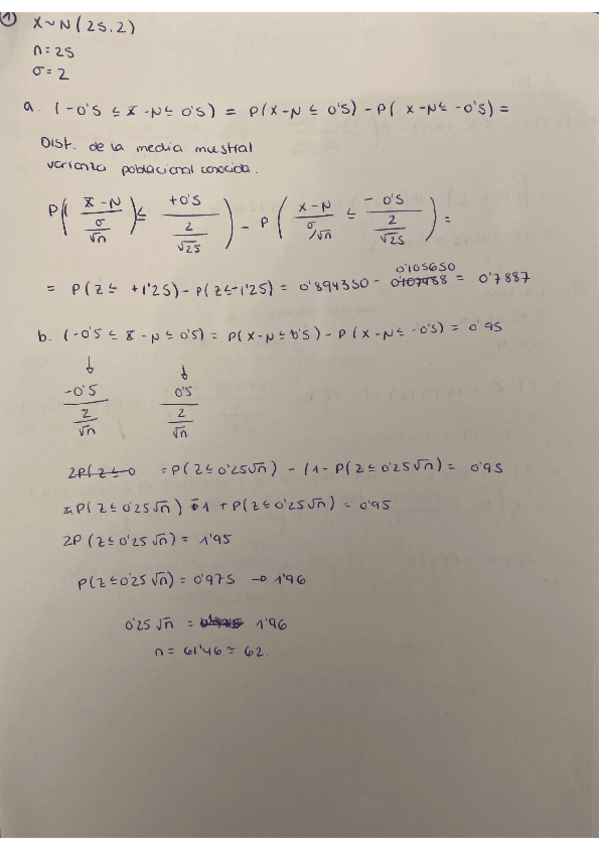 ① X ~ N(25,2)
n = 25
σ = 2
a. (-0'5 ≤ x̄ - N ≤ 0'5) = P(X-N ≤ 0'5) - P( X-N ≤ -0'5) =
Dist. de la media muestral
varianza poblacional conocida.
P( (x̄-N)/(σ/√n) ≤ (+0'5)/(2/√25) ) - P( (X-N)/(σ/√n) ≤ (-0'5)/(2/√25) ) =
= P(Z ≤ +1'25) - P(Z ≤ -1'25) = 0'894350 - 0'105650 = 0'7887
b. (-0'5 ≤ x̄ - N ≤ 0'5) = P(X-N ≤ 0'5) - P(X-N ≤ -0'5) = 0'95
↓ ↓
(-0'5)/(2/√n) (0'5)/(2/√n)
2P(Z ≤ 0 = P(Z ≤ 0'25√n) - (1 - P(Z ≤ 0'25√n) = 0'95
= P(Z ≤ 0'25√n) - 1 + P(Z ≤ 0'25√n) = 0'95
2P (Z ≤ 0'25√n) = 1'95
P(Z ≤ 0'25√n) = 0'975 → 1'96
0'25√n = 1'96.
n = 61'46 ≃ 62.